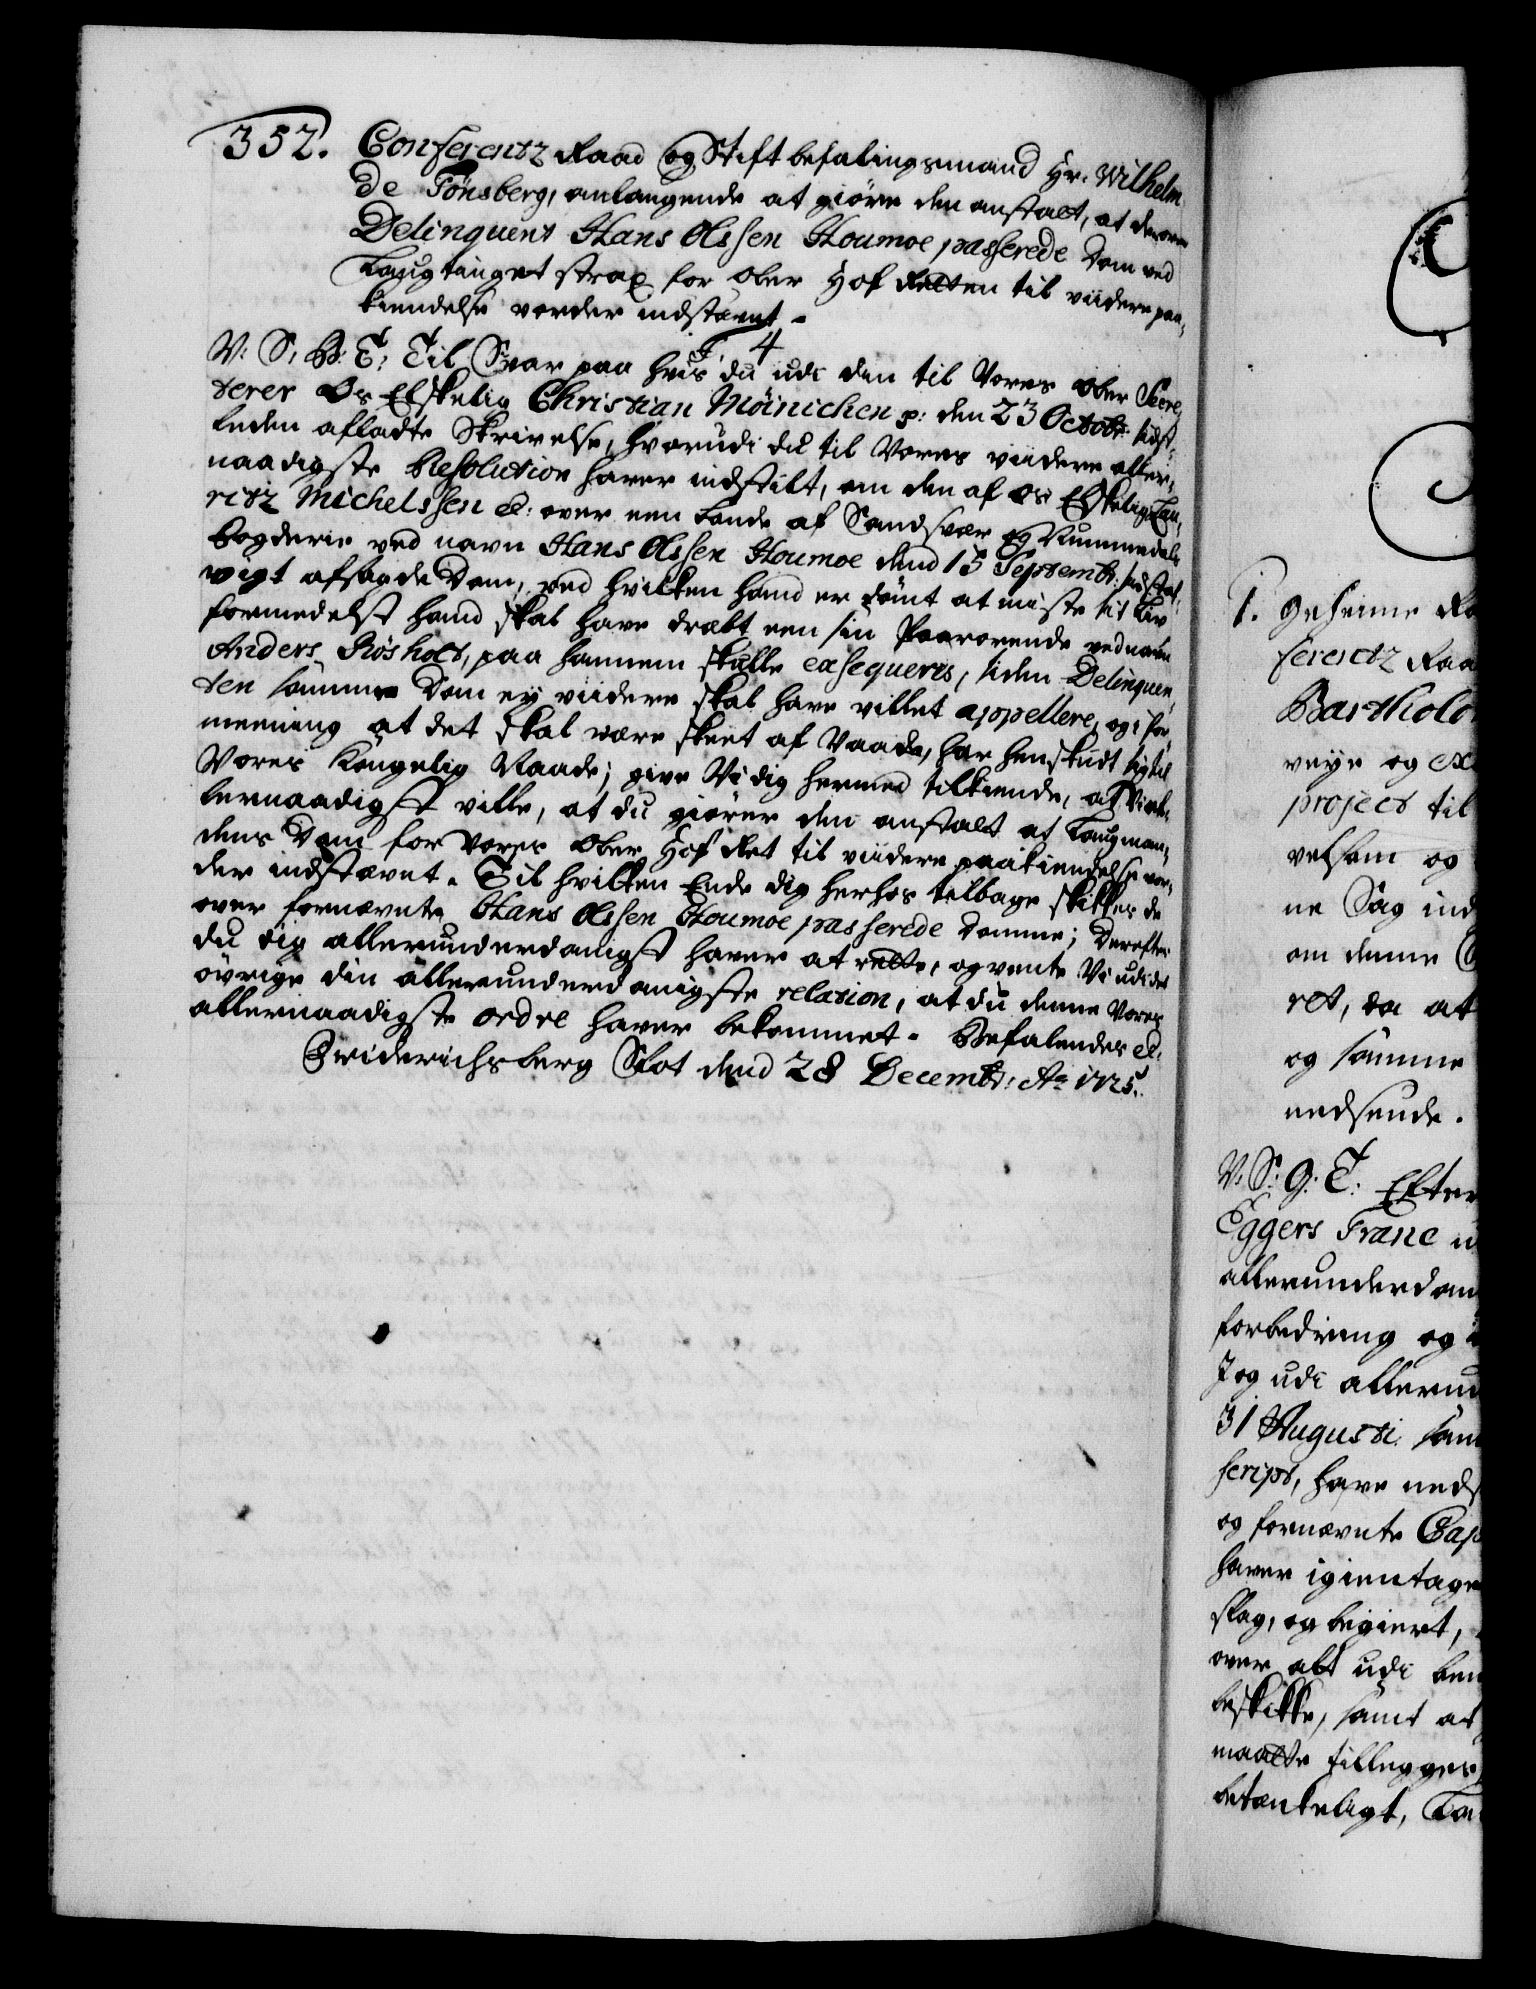 352. Conferentz Raad og Stiftbefalingsmand Hr. Wilhelm
de Tönsberg, anlangende at giöre den anstalt, at den over
Delinquent Hans Olssen Houmoe passerede Dom ved
Laugtinget strax for Ober Hof Retten til viidere paa¬
kiendelse vorder indstævnt.
V: S: H: T: Til Svar paa hvis du udi den til Vores Ober Secre¬
terer Os Elskelig Christian Möinichen p: den 23 Octobr: sidst¬
leden afladte Skrivelse, hvorudi du til Vores viidere aller¬
naadigste Resolution haver indstilt, om den af Os Elskelig Lau¬
ritz Michelssen etc: over een Bonde af Sandsvær og Nummedals
Fogderie ved navn Hans Olssen Houmoe dend 15 Septembr: sidst af¬
vigt afsagde Dom, ved hvilken hand er dömt at miste sit Liv
formedelst hand skal have dræbt een sin Paarörende ved navn
Anders Rösholt, paa hannem skulle exseqveris, siden Delinquen¬
ten samme Dom ey viidere skal have villet appellere, og i for¬
meening at det skal være skeet af Vaade, har henskudt sig til
Vores Kongelig Naade; give Vi dig hermed tilkiende, at Vi al¬
lernaadigst ville, at du giörer den anstalt at Laugman¬
dens Dom for Vores Ober Hof Ret til viidere paakiendelse vor¬
der indstævnt. Til hvilken Ende dig herhos tilbage skikkes de
over fornævnte Hans Olssen Houmoe passerede Domme; Derefter
du dig allerunderdanigst haver at rette, og vente Vi udi det
övrige din allerunderdanigste relation, at du denne Vores
allernaadigste ordre haver bekommet. Befalendes etc:
Friderichsberg Slot dend 28 Decembr: Ao 1725.
1. Geheime Ra
ferentz Raa
Bartholo
veye og ex
project til
velsom og
ne Sag ind
om denne
ret, da at
og samme
nedsende.
V: S: G: T: Efter
Eggers Franc u
allerunderdan
forbedring og
Jog udi allerund
31 Augusti sam
script, have neds
og fornævnte Cap
haver igientage
slag, og begiert,
over alt udi ben
beskikke, samt at
maatte tillegges
betænkeligt, Lau